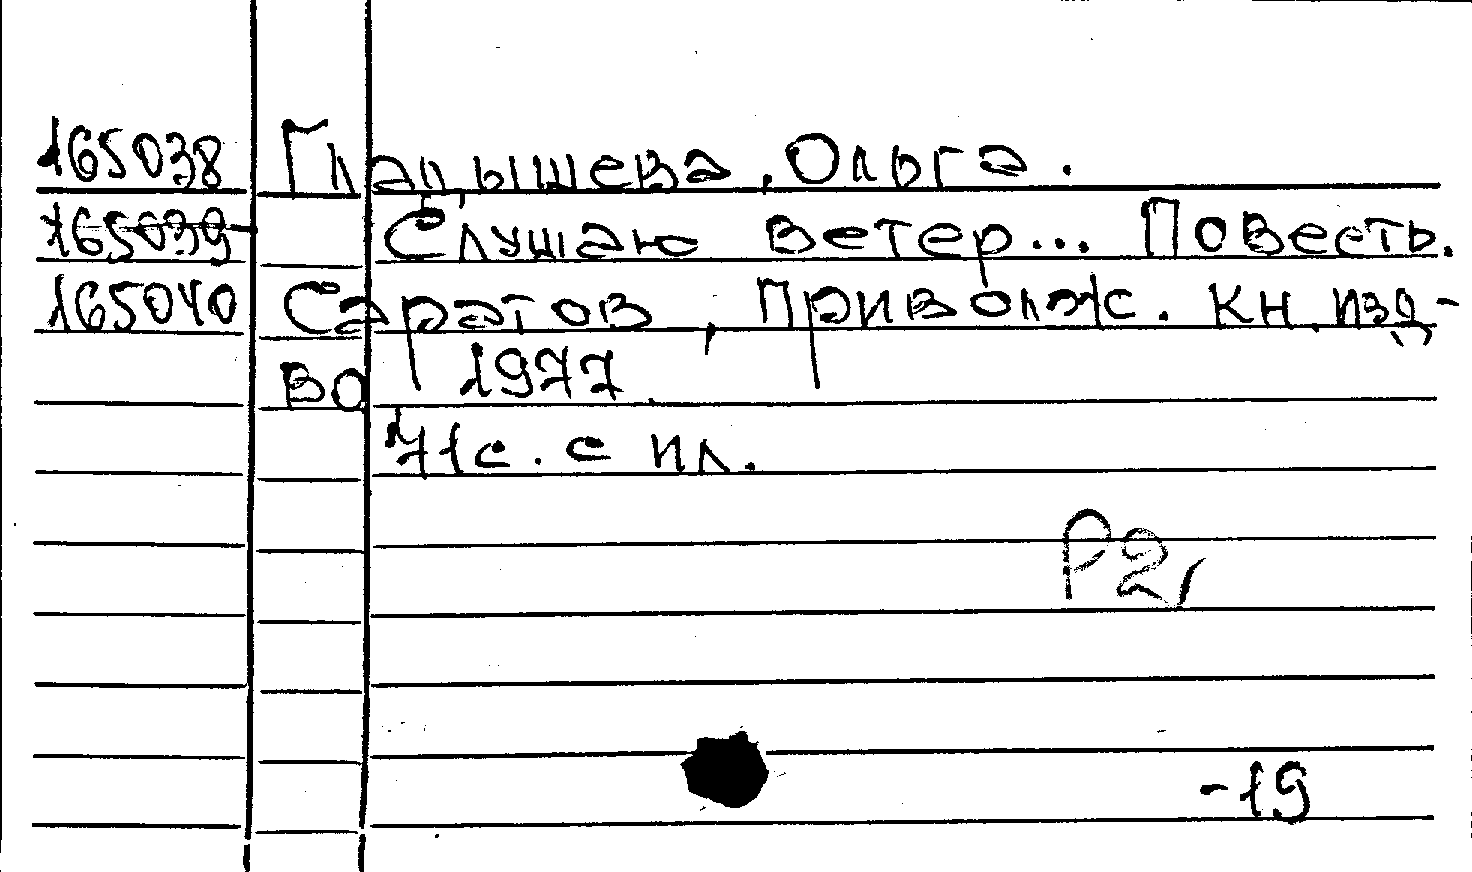 165038 Гладышева, Ольга.
165039 Слушаю ветер... Повесть.
165040 Саратов, Приволж. кн. изд-
во 1977.
71с. с ил.
Р2,
-19